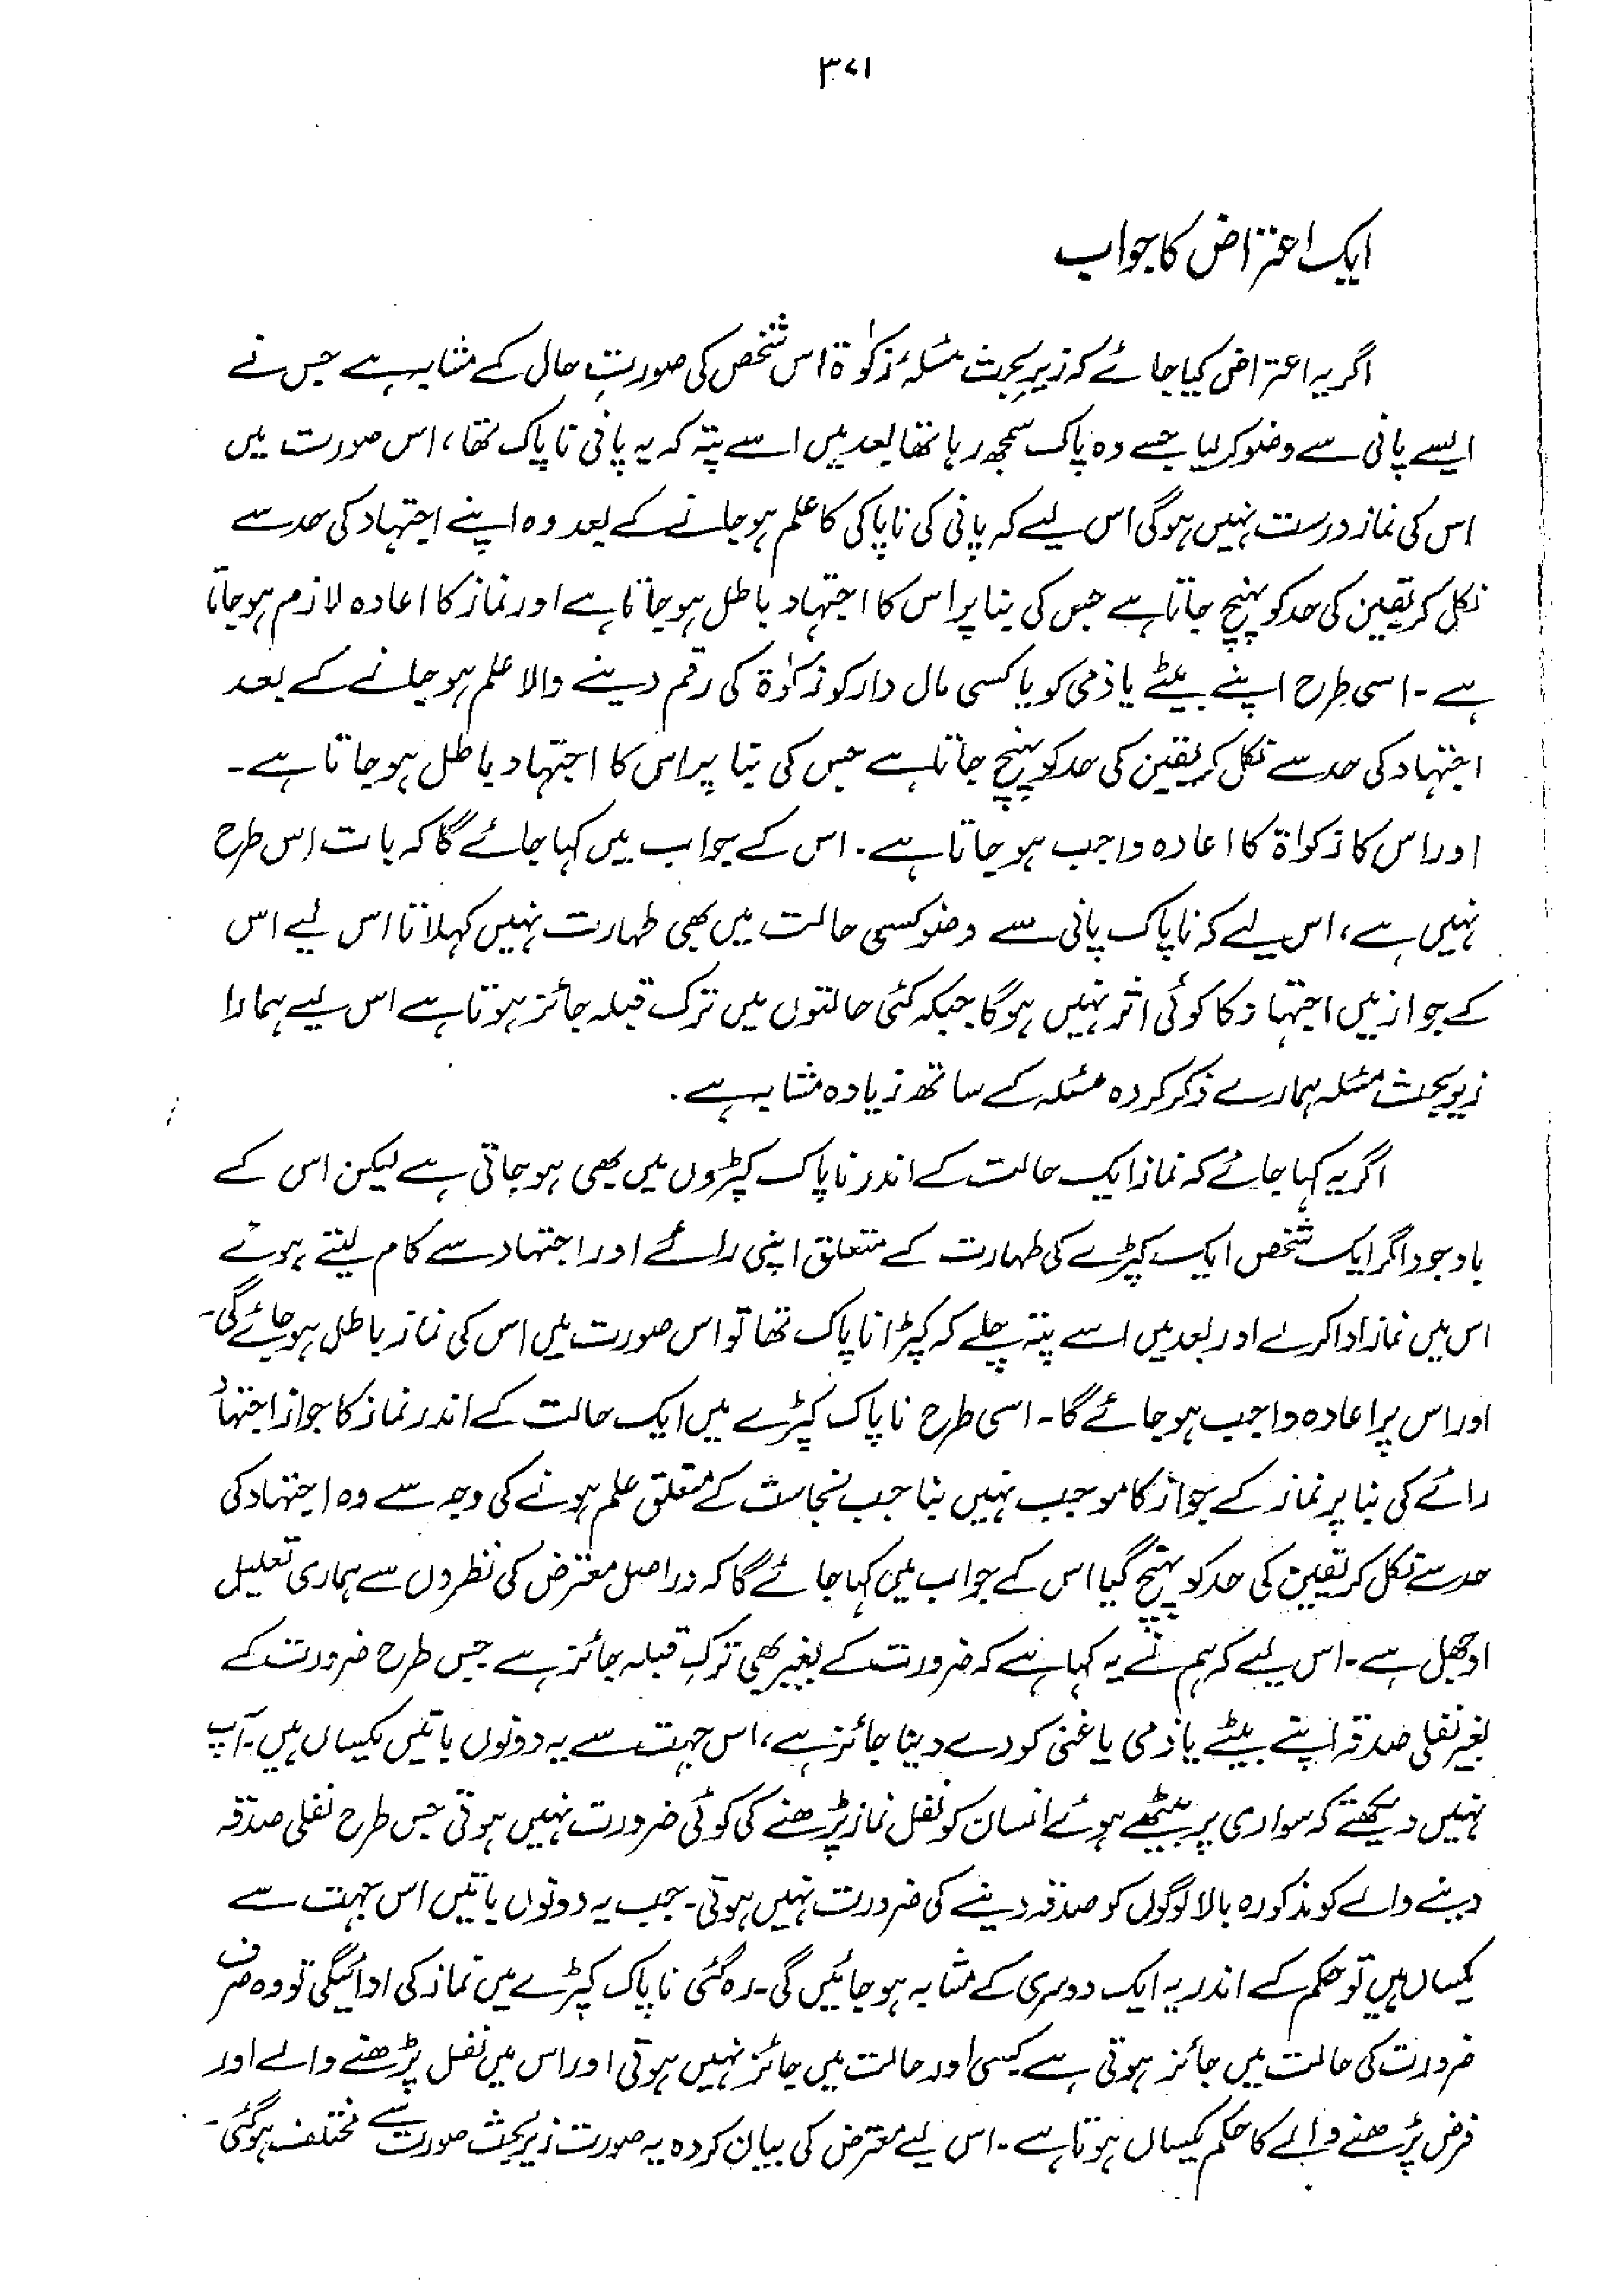 ۳۷۱
ایک اعتراض کا جواب
اگر یہ اعتراض کیا جائے کہ زیر بحث مسئلہ زکوٰۃ اس شخص کی صورتِ حال کے مشابہ ہے جس نے
ایسے پانی سے وضو کر لیا جسے وہ پاک سمجھ رہا تھا بعد میں اسے پتہ کہ یہ پانی ناپاک تھا، اس صورت میں
اس کی نماز درست نہیں ہوگی اس لیے کہ پانی کی ناپاکی کا علم ہو جانے کے بعد وہ اپنے اجتہاد کی حد سے
نکل کر یقین کی حد کو پہنچ جاتا ہے جس کی بنا پر اس کا اجتہاد باطل ہو جاتا ہے اور نماز کا اعادہ لازم ہو جاتا
ہے۔ اسی طرح اپنے بیٹے یا ذمی کو یا کسی مال دار کو زکوٰۃ کی رقم دینے والا علم ہو جانے کے بعد
اجتہاد کی حد سے نکل کر یقین کی حد کو پہنچ جاتا ہے جس کی بنا پر اس کا اجتہاد باطل ہو جاتا ہے۔
اور اس کا زکواۃ کا اعادہ واجب ہو جاتا ہے۔ اس کے جواب میں کہا جائے گا کہ بات اس طرح
نہیں ہے، اس لیے کہ ناپاک پانی سے وضو کسی حالت میں بھی طہارت نہیں کہلاتا اس لیے اس
کے جواز میں اجتہاد کا کوئی اثر نہیں ہوگا جبکہ کئی حالتوں میں ترک قبلہ جائز ہوتا ہے اس لیے ہمارا
زیر بحث مسئلہ ہمارے ذکر کردہ مسئلہ کے ساتھ زیادہ مشابہ ہے۔
اگر یہ کہا جائے کہ نماز ایک حالت کے اندر ناپاک کپڑوں میں بھی ہو جاتی ہے لیکن اس کے
باوجود اگر ایک شخص ایک کپڑے کی طہارت کے متعلق اپنی رائے اور اجتہاد سے کام لیتے ہوئے
اس میں نماز ادا کرلے اور بعد میں اسے پتہ چلے کہ کپڑا ناپاک تھا تو اس صورت میں اس کی نماز باطل ہو جائے گی۔
اور اس پر اعادہ واجب ہو جائے گا۔ اسی طرح ناپاک کپڑے میں ایک حالت کے اندر نماز کا جواز اجتہاد
رائے کی بنا پر نماز کے جواز کا موجب نہیں بنا جب نجاست کے متعلق علم ہونے کی وجہ سے وہ اجتہاد کی
حد سے نکل کر یقین کی حد کو پہنچ گیا اس کے جواب میں کہا جائے گا کہ دراصل معترض کی نظروں سے ہماری تعلیل
اوجھل ہے۔ اس لیے کہ ہم نے یہ کہا ہے کہ ضرورت کے بغیر بھی ترکِ قبلہ جائز ہے جس طرح ضرورت کے
بغیر نفلی صدقہ اپنے بیٹے یا ذمی یا غنی کو دے دینا جائز ہے، اس جہت سے یہ دونوں باتیں یکساں ہیں۔ آپ
نہیں دیکھتے کہ سواری پر بیٹھے ہوئے انسان کو نفل نماز پڑھنے کی کوئی ضرورت نہیں ہوتی جس طرح نفلی صدقہ
دینے والے کو مذکورہ بالا لوگوں کو صدقہ دینے کی ضرورت نہیں ہوتی۔ جب یہ دونوں باتیں اس جہت سے
یکساں ہیں تو حکم کے اندر یہ ایک دوسری کے مشابہ ہو جائیں گی۔ رہ گئی ناپاک کپڑے میں نماز کی ادائیگی تو وہ صرف
ضرورت کی حالت میں جائز ہوتی ہے کسی اور حالت میں جائز نہیں ہوتی اور اس میں نفل پڑھنے والے اور
فرض پڑھنے والے کا حکم یکساں ہوتا ہے۔ اس لیے معترض کی بیان کردہ یہ صورت زیر بحث صورت سے مختلف ہو گئی۔